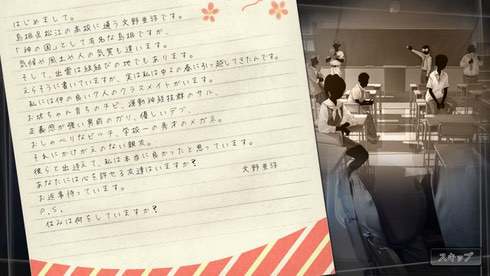 はじめまして。
島根県松江の高校に通う文野亜弥です。
「神の国」として有名な島根ですが、
気候が風土が人の気質も違います。
そして、出雲は縁結びの地でもあります。
えらそうに書いていますが、実は私は中2の春に引っ越してきたんです。
私には仲の良い7人のクラスメイトがいます。
お坊ちゃん育ちのチビ、運動神経抜群のサル、
正義感が強い男前のガリ、優しいデブ、
おしゃべりなビッチ、学校一の秀才のメガネ。
それにかけがえのない親友。
彼らと出逢えて、私は本当に良かったと思っています。
あなたには心を許せる友達はいますか?
お返事待っています。
文野亜弥
P.S.
休みは何をしていますか?
スキップ